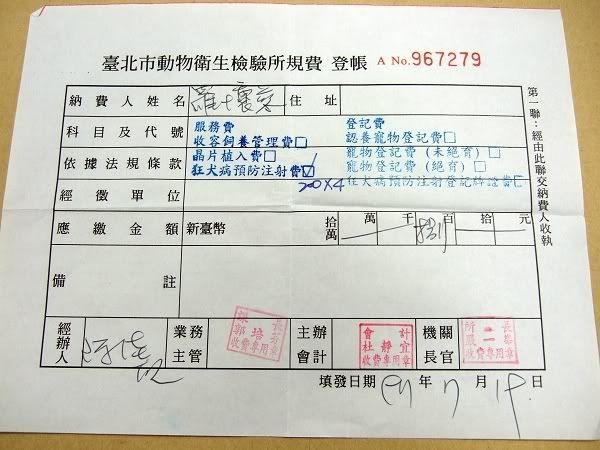 臺北市動物衛生檢驗所規費 登帳 A No.967279
納費人姓名 羅 住址
科目及代號 服務費 登記費
收容飼養管理費□ 認養寵物登記費□
依據法規條款 晶片植入費□ 寵物登記費(未絕育)□
狂犬病預防注射費☑ 寵物登記費(絕育)□
經徵單位 200X4 狂犬病預防注射登記牌證費□
應繳金額 新臺幣 拾萬 萬 千 捌 百 拾 元
備註
經辦人 業務主管 主辦會計 機關長官
收費專用章
會計
杜靜宜
收費專用章
填發日期 年 7 月 19 日
第一聯：經由此聯交納費人收執